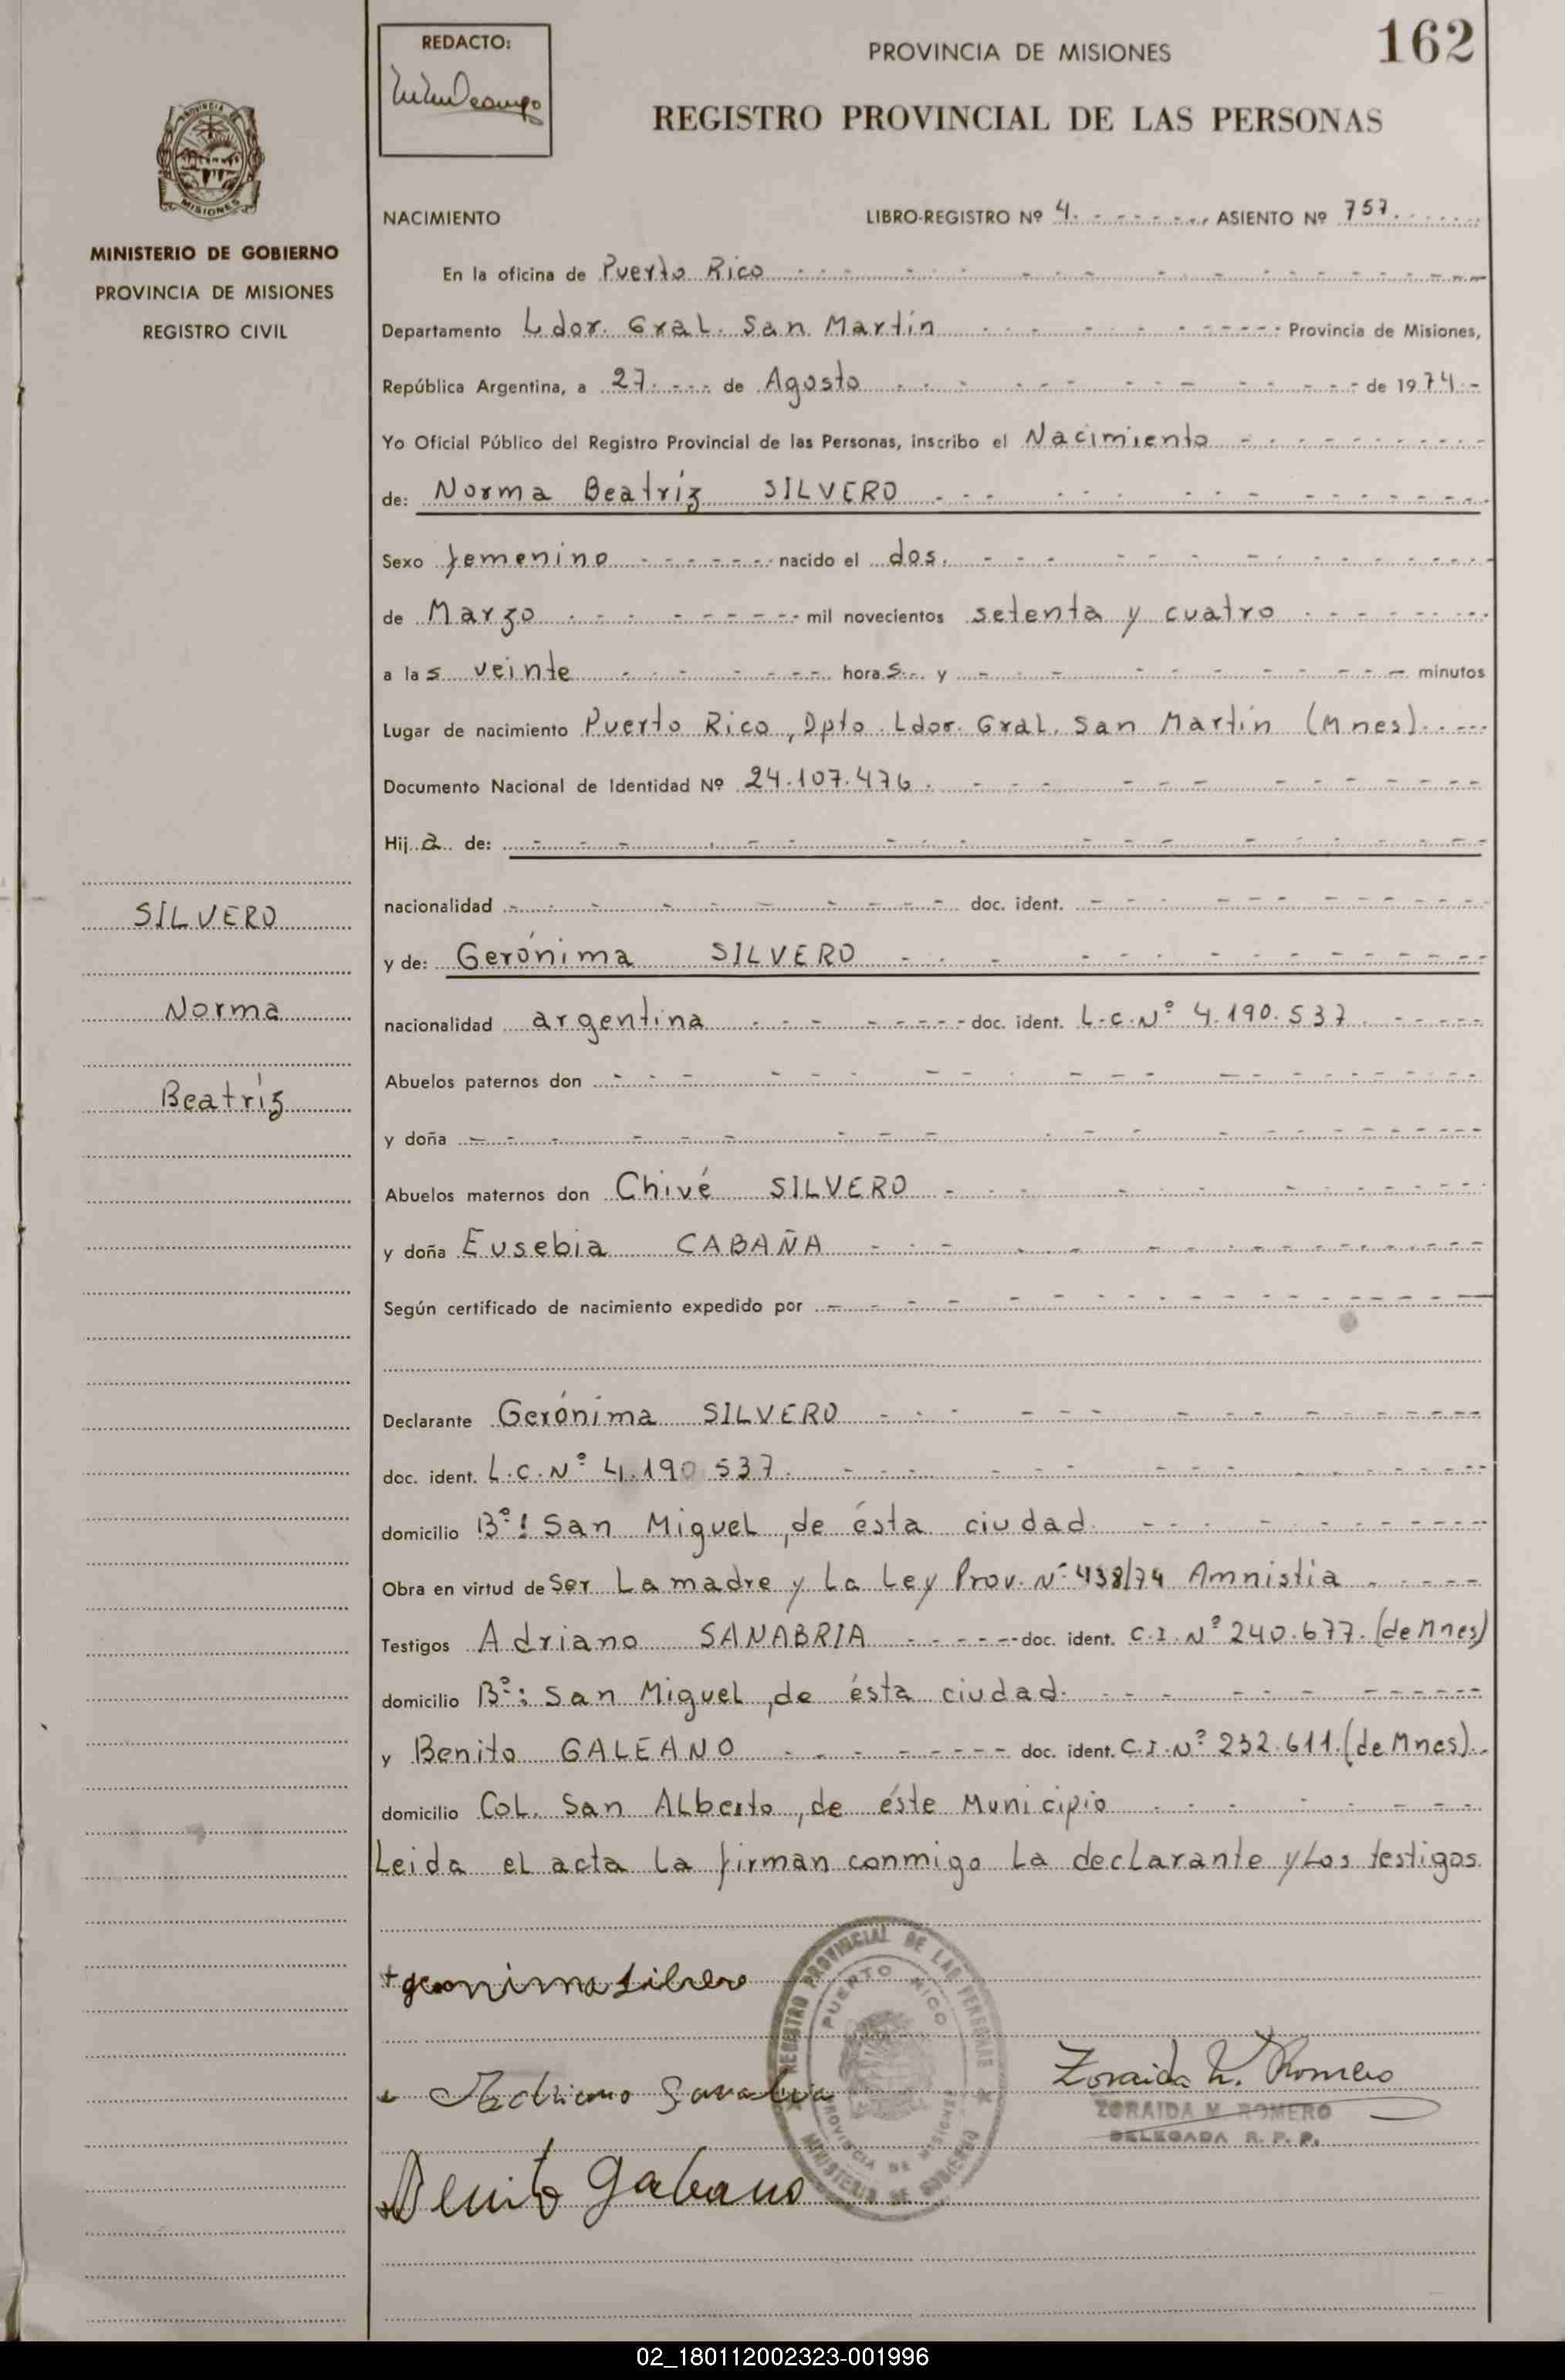 REDACTO:
PROVINCIA DE MISIONES
162
REGISTRO PROVINCIAL DE LAS PERSONAS
MISIONES
MINISTERIO DE GOBIERNO
PROVINCIA DE MISIONES
REGISTRO CIVIL
NACIMIENTO LIBRO-REGISTRO Nº 4. ASIENTO Nº 757.
En la oficina de Puerto Rico
Departamento Ldor. Gral. San Martín Provincia de Misiones,
República Argentina, a 27 de Agosto de 1974
Yo Oficial Público del Registro Provincial de las Personas, inscribo el Nacimiento
de: Norma Beatríz SILVERO
Sexo femenino nacido el dos.
de Marzo mil novecientos setenta y cuatro
a las veinte horas y minutos
Lugar de nacimiento Puerto Rico, Dpto. Ldor. Gral. San Martín (Mnes).
Documento Nacional de Identidad Nº 24.107.476.
Hija de:
nacionalidad doc. ident.
y de: Gerónima SILVERO
nacionalidad argentina doc. ident. L.C. Nº 4.190.537
Abuelos paternos don
y doña
Abuelos maternos don Chivé SILVERO
y doña Eusebia CABAÑA
Según certificado de nacimiento expedido por
Declarante Gerónima SILVERO
doc. ident. L.C. Nº 4.190.537.
domicilio Bº: San Miguel, de ésta ciudad.
Obra en virtud de ser La madre y La Ley Prov. Nº 438/74 Amnistia
Testigos Adriano SANABRIA doc. ident. C.I. Nº 240.677. (de Mnes)
domicilio Bº: San Miguel, de ésta ciudad.
y Benito GALEANO doc. ident. C.I. Nº 232.611. (de Mnes).
domicilio Col. San Alberto, de éste Municipio
Leida el acta la firman conmigo la declarante y Los testigos.
SILVERO
Norma
Beatríz
geronima silvero
REGISTRO PROVINCIAL DE LAS PERSONAS
PUERTO RICO
PROVINCIA DE MISIONES
MINISTERIO DE GOBIERNO
Adriano Sanabria
Zoraida M. Romero
ZORAIDA M. ROMERO
DELEGADA R. P. P.
Benito Galeano
02_180112002323-001996